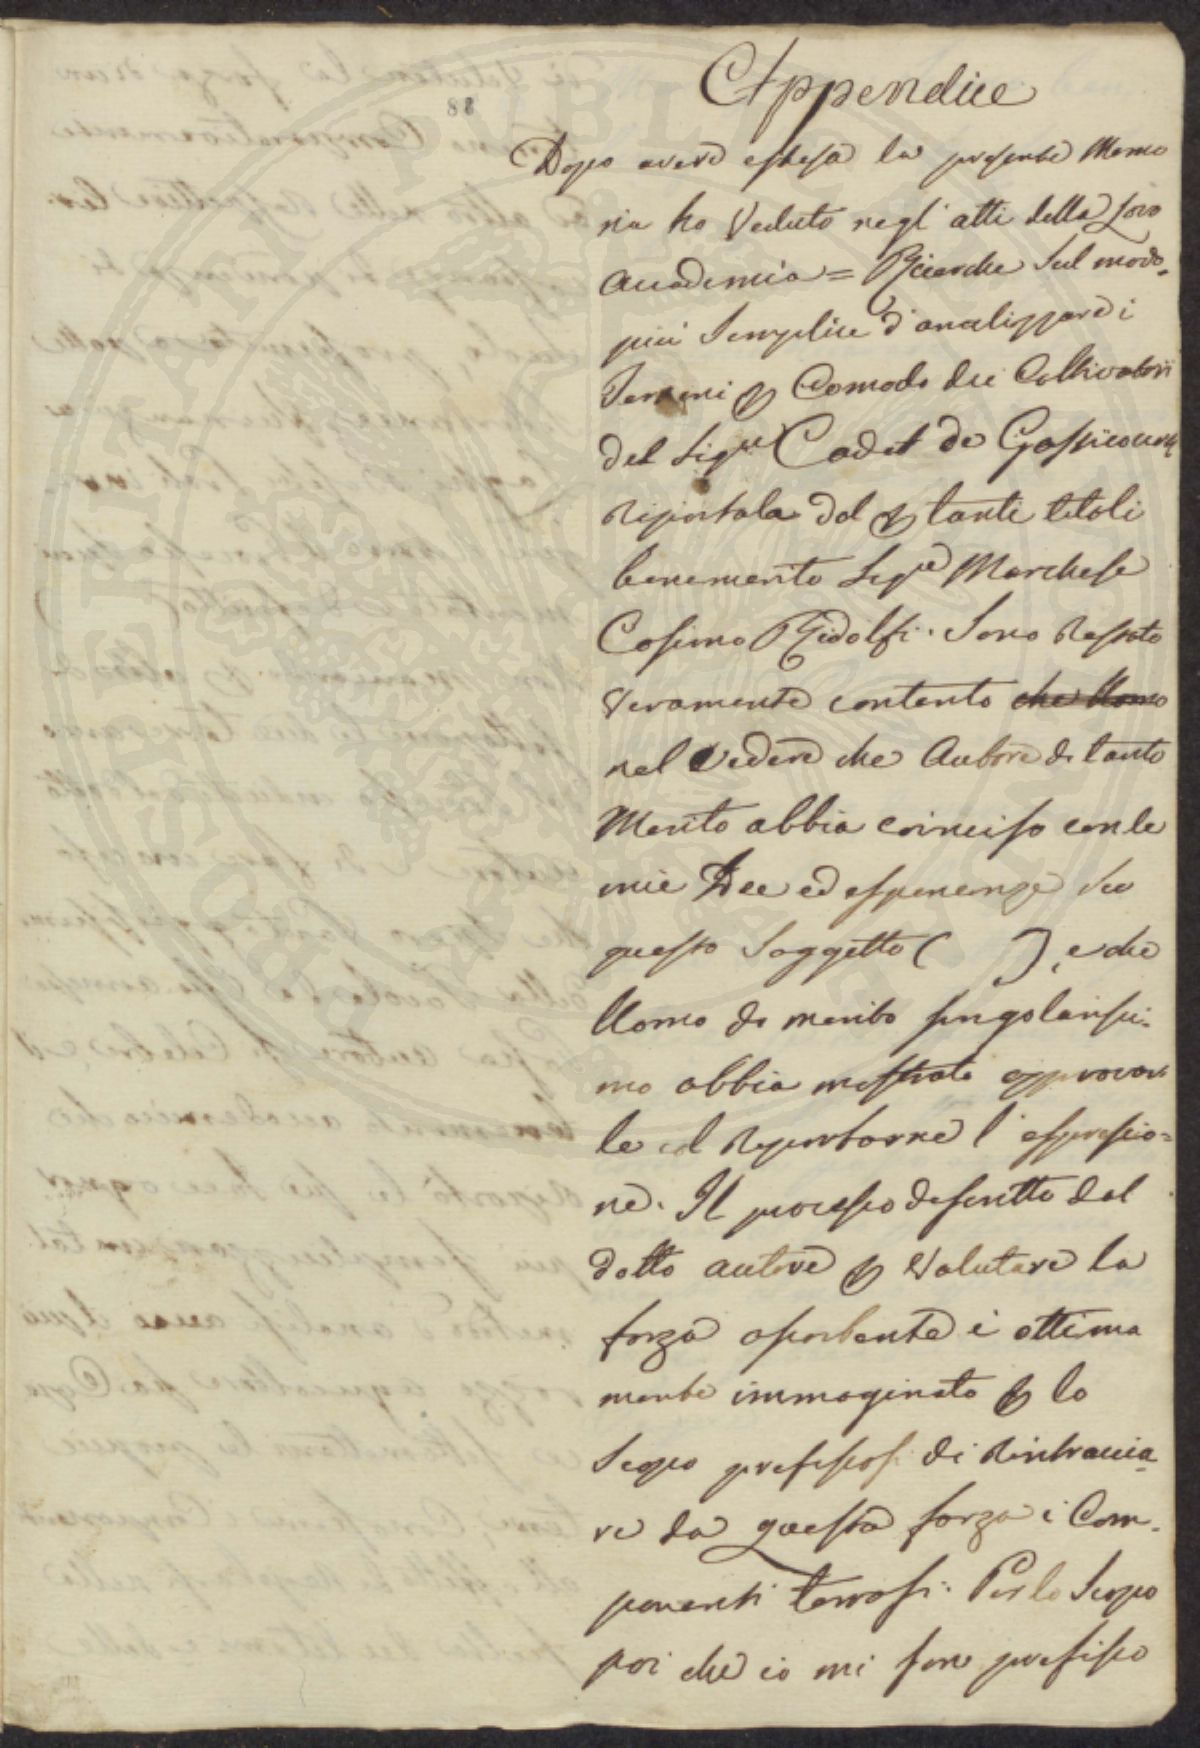 88
Appendice
Dopo avere estesa la presente Memo
ria ho Veduto negl' atti della Loro
Accademia = Ricerche Sul modo
più Semplice d'analizzare i
Terreni p Comodo dei Coltivatori
del Sigre Cadet de Gassicourt
Riportata dal p tanti titoli
benemerito Sigre Marchese
Cosimo Ridolfi. Sono Restato
Veramente contento che Uomo
nel Vedere che Autore di tanto
Merito abbia coinciso con le
mie Idee ed esperienze su
questo Soggetto ( ), e che
Uomo di merito singolarissi-
mo abbia mostrato approvar
le col Riportarne l'espressio=
ne. Il processo descritto dal
dotto autore p Valutare la
forza assorbente è ottima
mente immaginato p lo
Scopo prefissosi di Rintraccia
re da questa forza i Com-
ponenti terrosi. Per lo Scopo
poi che io mi sono prefisso